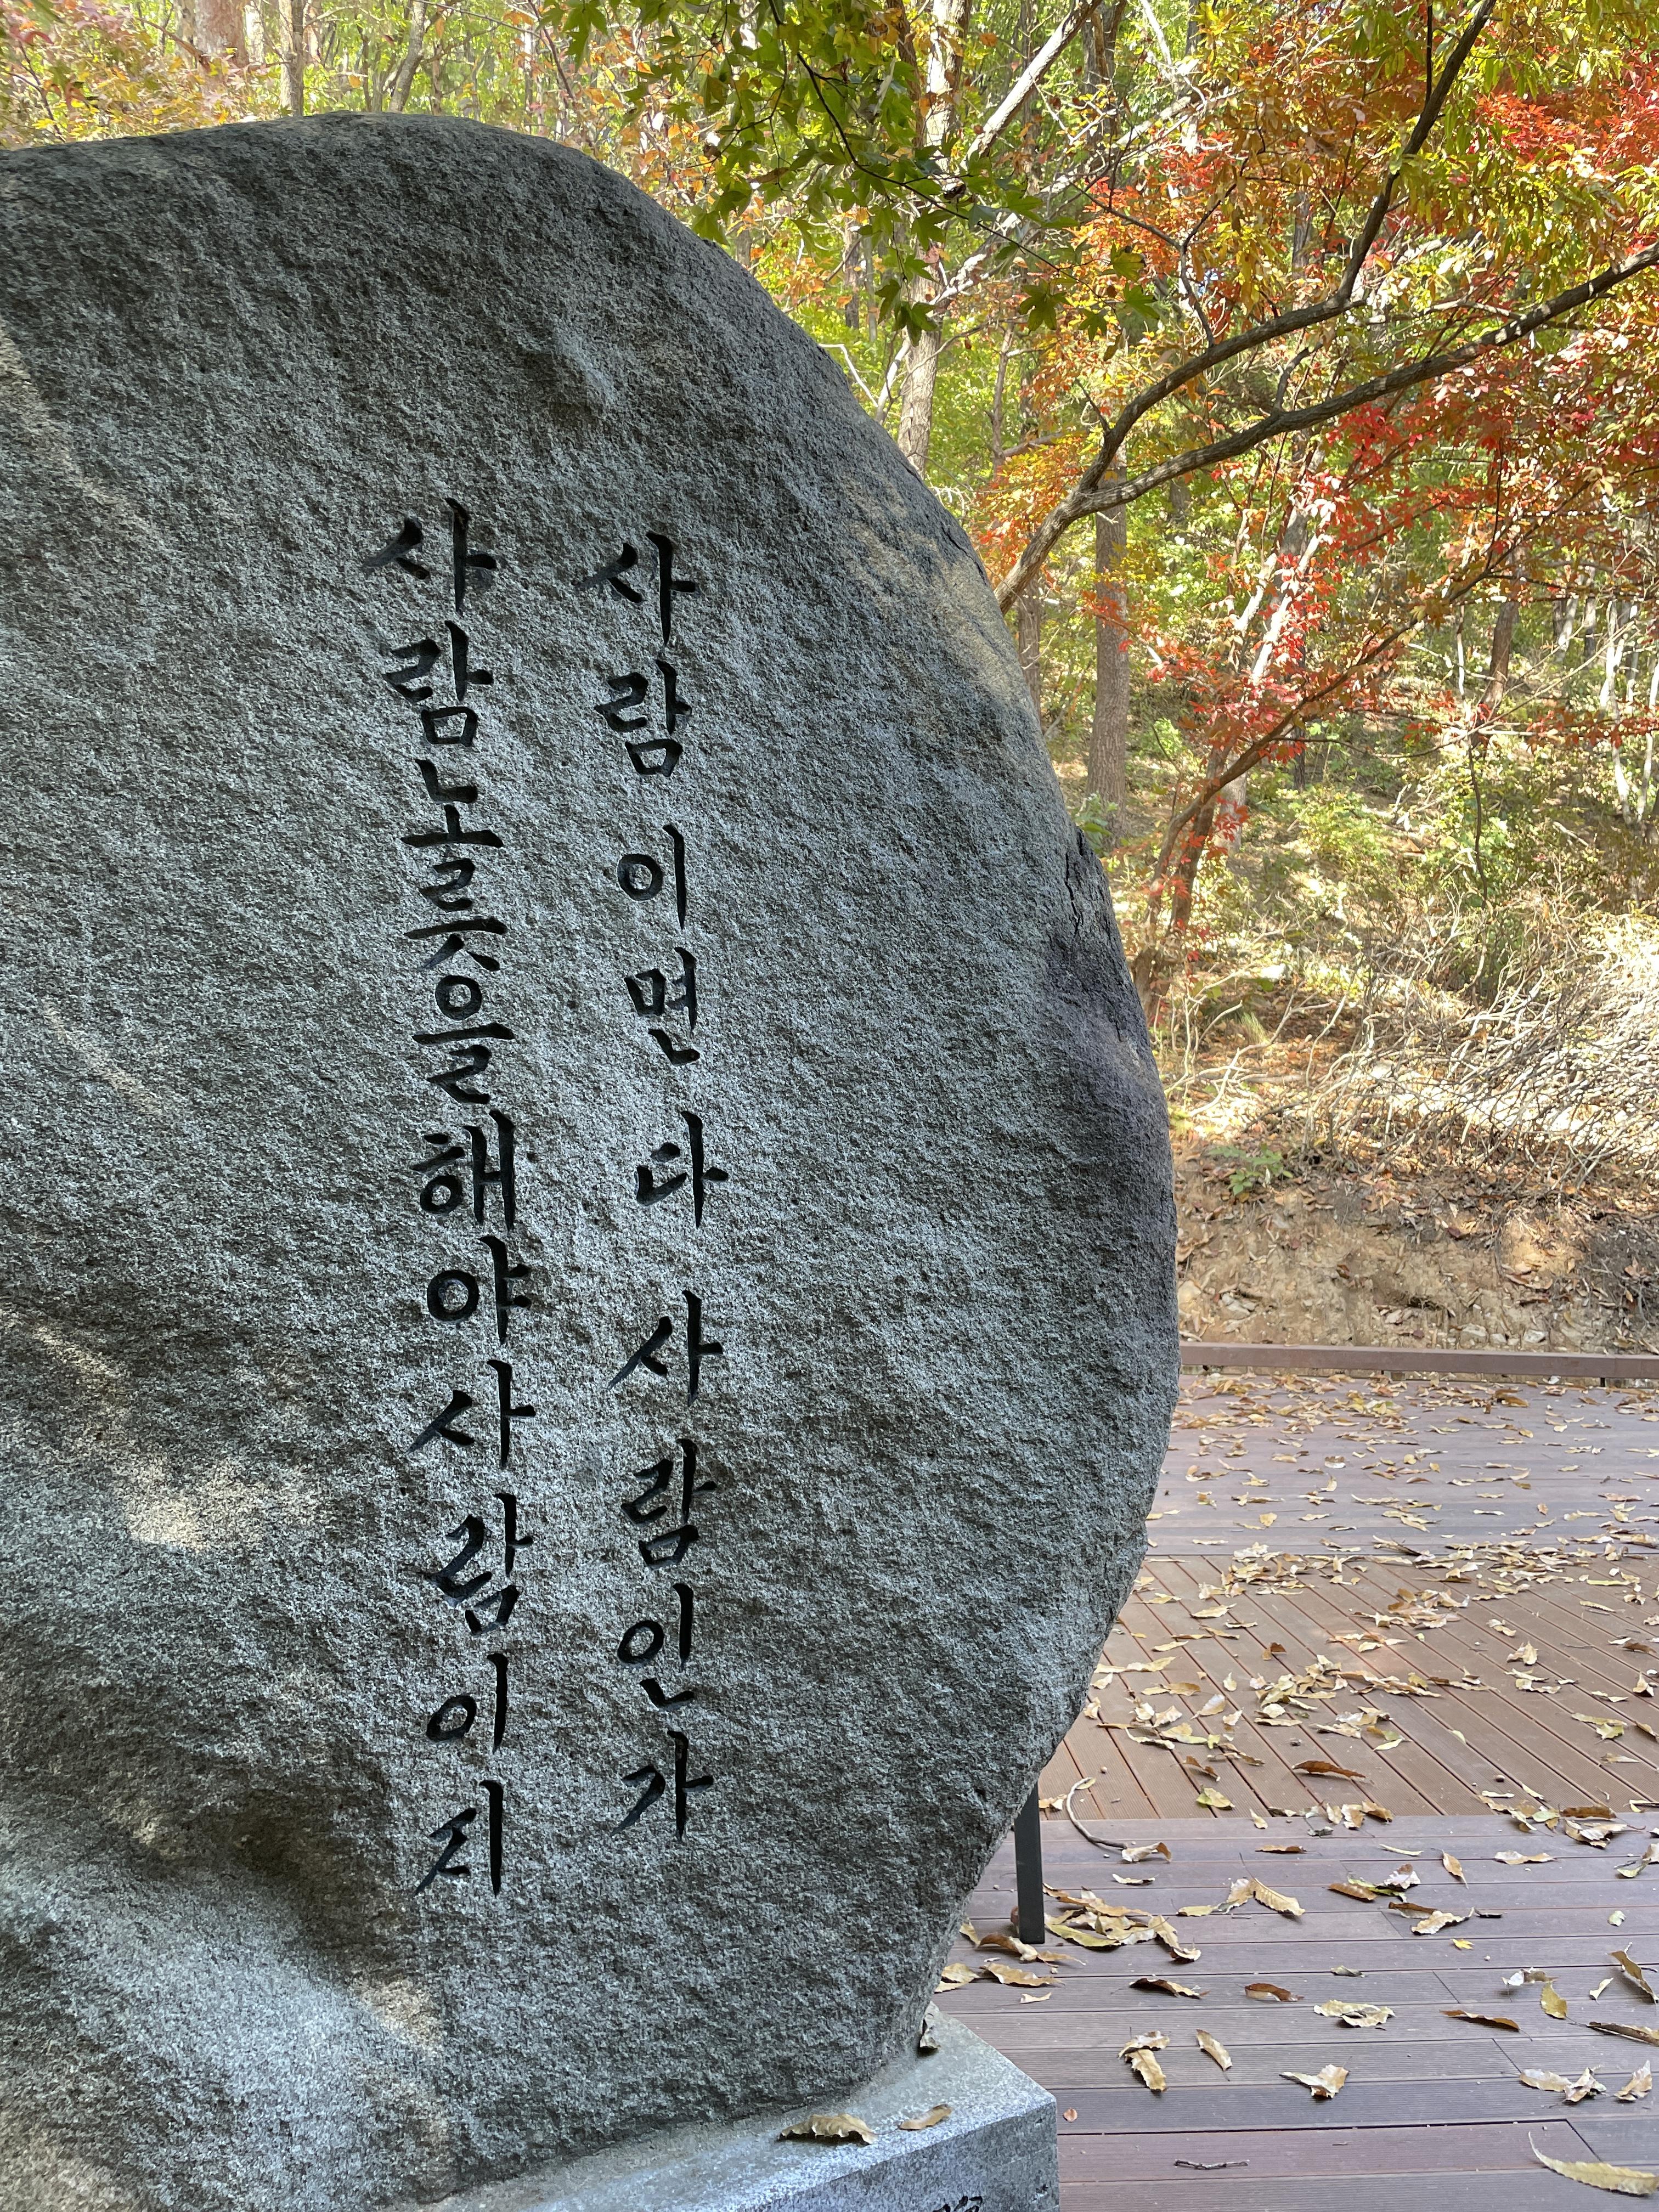 사람이면 다 사람인가
사람노릇을 해야 사람이지